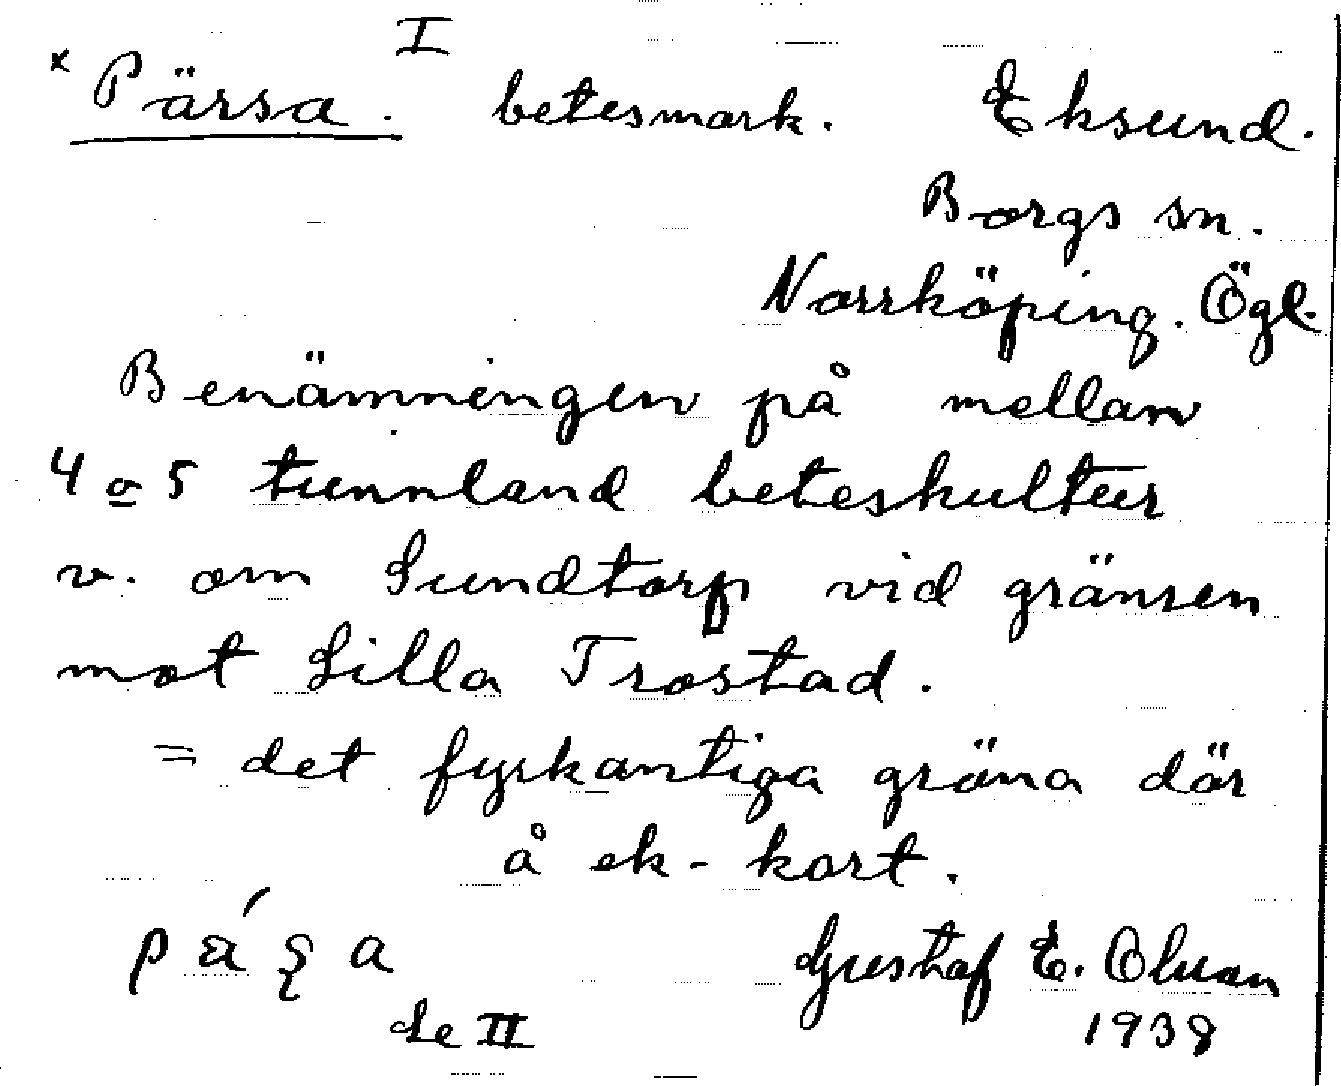 I
x Pärsa. betesmark. Eksund.
Borgs sn.
Norrköping. Ögl.
Benämningen på mellan
4 o 5 tunnland beteskultur
v. om Sundtorp vid gränsen
mot Lilla Trostad.
= det fyrkantiga gröna där
å ek-kart.
Gustaf E. Olsson
de II 1938